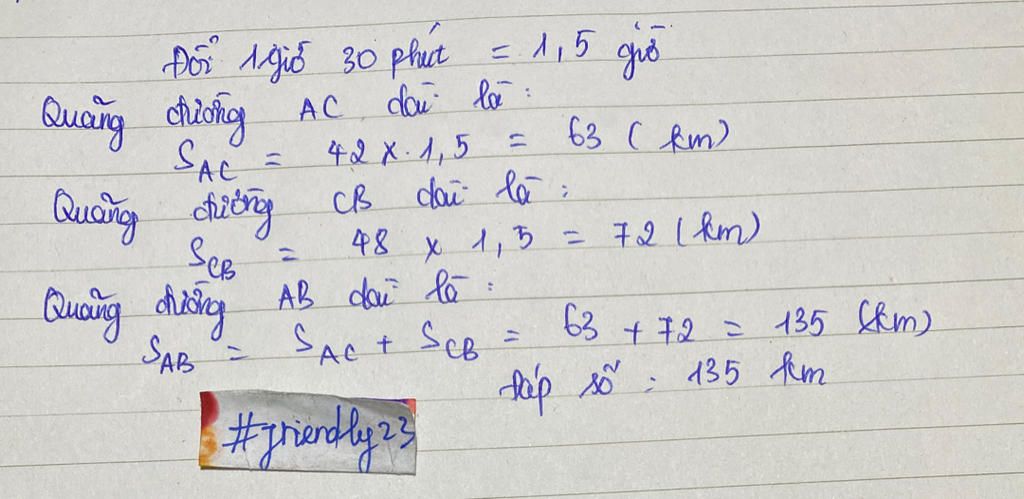 Đổi 1 giờ 30 phút = 1,5 giờ
Quãng đường AC dài là :
S_AC = 42 x 1,5 = 63 ( km)
Quãng đường CB dài là :
S_CB = 48 x 1,5 = 72 ( km)
Quãng đường AB dài là :
S_AB = S_AC + S_CB = 63 + 72 = 135 (km)
Đáp số : 135 km
#friendly23